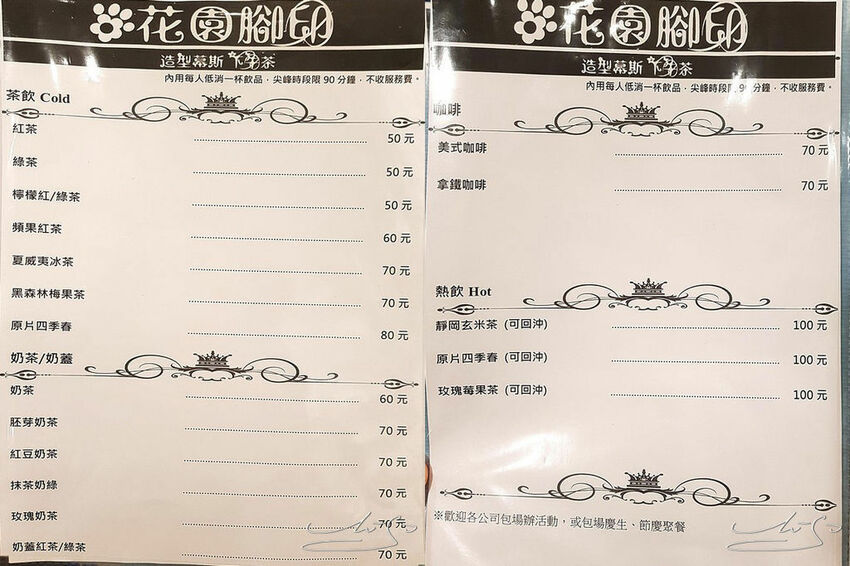 花園腳印
造型慕斯 下午茶
內用每人低消一杯飲品，尖峰時段限 90 分鐘，不收服務費。
茶飲 Cold
紅茶 50 元
綠茶 50 元
檸檬紅/綠茶 50 元
蘋果紅茶 60 元
夏威夷冰茶 70 元
黑森林梅果茶 70 元
原片四季春 80 元
奶茶/奶蓋
奶茶 60 元
胚芽奶茶 70 元
紅豆奶茶 70 元
抹茶奶綠 70 元
玫瑰奶茶 70 元
奶蓋紅茶/綠茶 70 元
花園腳印
造型慕斯 下午茶
內用每人低消一杯飲品，尖峰時段限 90 分鐘，不收服務費。
咖啡
美式咖啡 70 元
拿鐵咖啡 70 元
熱飲 Hot
靜岡玄米茶 (可回沖) 100 元
原片四季春 (可回沖) 100 元
玫瑰莓果茶 (可回沖) 100 元
※歡迎各公司包場辦活動，或包場慶生、節慶聚餐